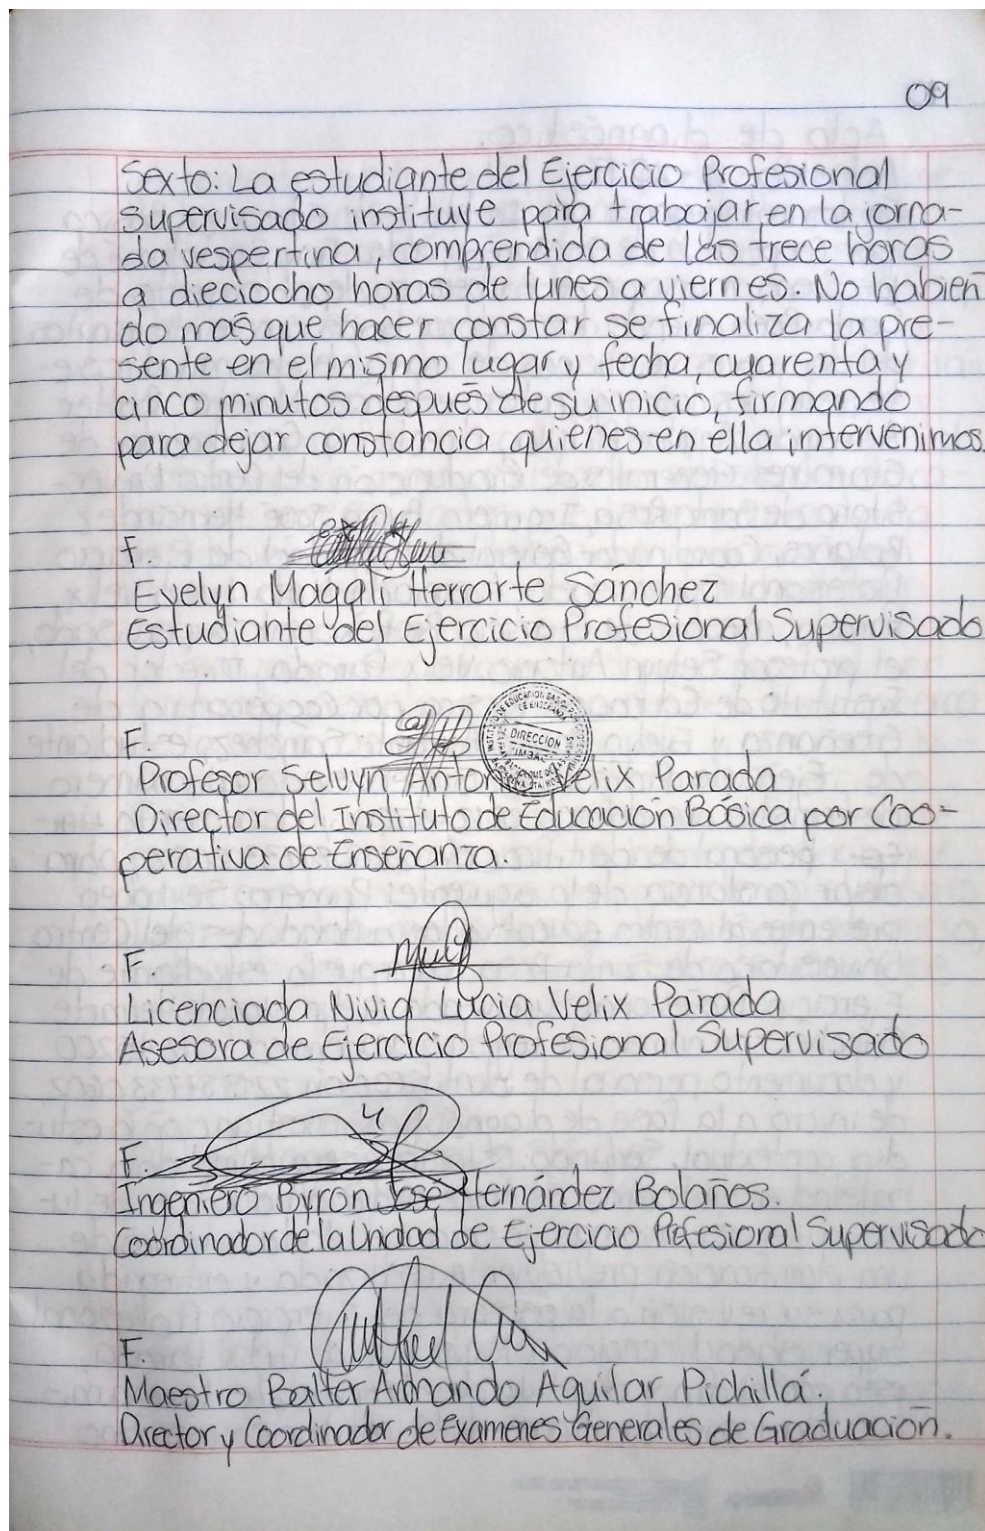 09
Sexto: La estudiante del Ejercicio Profesional
supervisado instituye para trabajar en la jorna-
da vespertina, comprendida de las trece horas
a dieciocho horas de lunes a viernes. No habien
do mas que hacer constar se finaliza la pre-
sente en el mismo lugar y fecha, cuarenta y
cinco minutos después de su inicio, firmando
para dejar constancia quienes en ella intervenimos.
F.
Evelyn Magalí Herrarte Sánchez
Estudiante del Ejercicio Profesional Supervisado
DIRECCION
F.
Profesor Selvyn Antonio Velix Parada
Director del Instituto de Educación Básica por Coo-
perativa de Enseñanza.
F.
Licenciada Nivia Lucia Velix Parada
Asesora de Ejercicio Profesional Supervisado
F.
Ingeniero Byron José Hernández Bolaños.
Coordinador de la Unidad de Ejercicio Profesional Supervisado
F.
Maestro Balter Armando Aguilar Pichillá.
Director y Coordinador de Examenes Generales de Graduación.